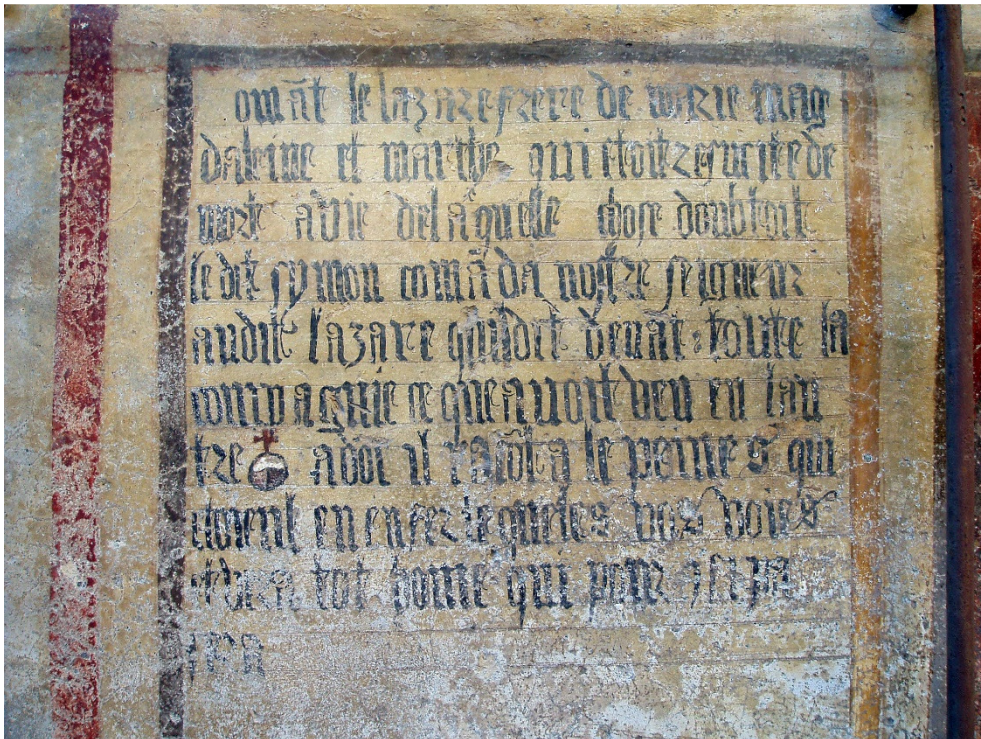 le lazare frere de marie mag
daleine et marthe qui etoit resucite de
mort a vie de laquelle chose doubtoit
le dit symon comãda nostre seigneur
audit lazare quil dit devãt toute la
compagnie ce que avoit veu en lau
tre adõc il racõta le peines qui
etoient en enfer lequeles vos voies
tot home qui pour